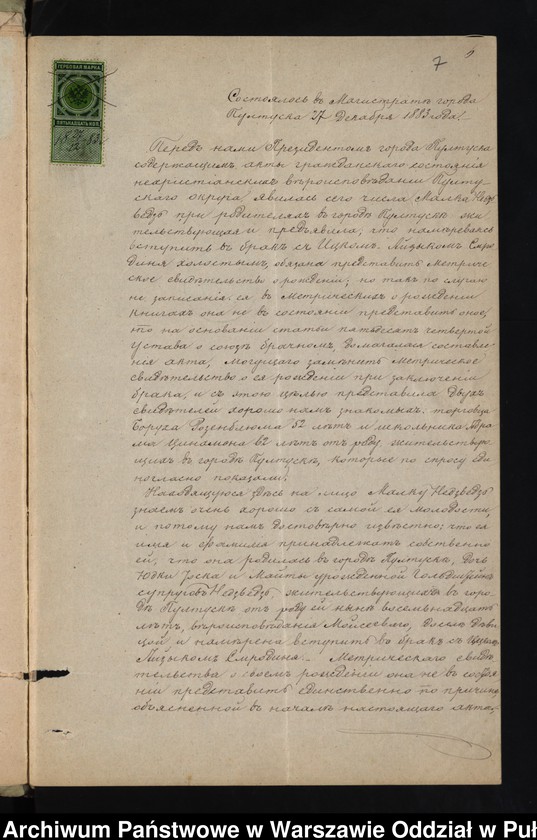 7
ГЕРБОВАЯ МАРКА
ПЯТЬДЕСЯТЪ КОП.
Состоялось въ Магистратѣ города
Пултуска 27 Декабря 1883 года.
Передъ нами Президентомъ города Пултуска
содержащимъ акты гражданскаго состоянія
нехристіанскихъ вѣроисповѣданій Пулту-
скаго округа явилась сего числа Малка Недз-
ведзь при родителяхъ въ городѣ Пултускѣ жи-
тельствующая и предъявила, что намѣреваясь
вступить въ бракъ съ Ицкомъ Лизыкомъ Смро-
диня холостымъ, обязана представить метриче-
ское свидѣтельство о рожденіи; но такъ по случаю
не записанія ея въ метрическихъ о рожденіи
книгахъ она не въ состояніи представить оное,
то на основаніи статьи пятьдесятъ четвертой
устава о союзѣ брачномъ, домагалась составле-
нія акта, могущаго замѣнить метрическое
свидѣтельство о ея рожденіи при заключеніи
брака, и съ этою цѣлью представила двухъ
свидѣтелей хорошо намъ знакомыхъ: торговца
Боруха Розенблюма 52 лѣтъ и школьника Абра-
ма Цинамона 62 лѣтъ отъ роду, жительствую-
щихъ въ городѣ Пултускѣ, которые по спросу еди-
ногласно показали:
Находящуюся здѣсь на лицо Малку Недзведзь
знаемъ очень хорошо съ самой ея молодости,
и потому намъ достовѣрно извѣстно: что ея
имя и фамилія принадлежатъ собственно
ей, что она родилась въ городѣ Пултускѣ, дочь
Юдки Іоска и Майты урожденной
супруговъ Недзведзь, жительствующихъ въ горо-
дѣ Пултускѣ отъ роду ей нынѣ восемьнадцать
лѣтъ, вѣроисповѣданія Моисеева, досель дѣви-
цой и намѣрена вступить во бракъ съ Ицкомъ
Лизыкомъ Смродиня. Метрическаго свидѣ-
тельства о своемъ рожденіи она не въ состоя-
ніи представить единственно по причинѣ
объясненной въ началѣ настоящаго акта.
Archiwum Państwowe w Warszawie Oddział w Puł